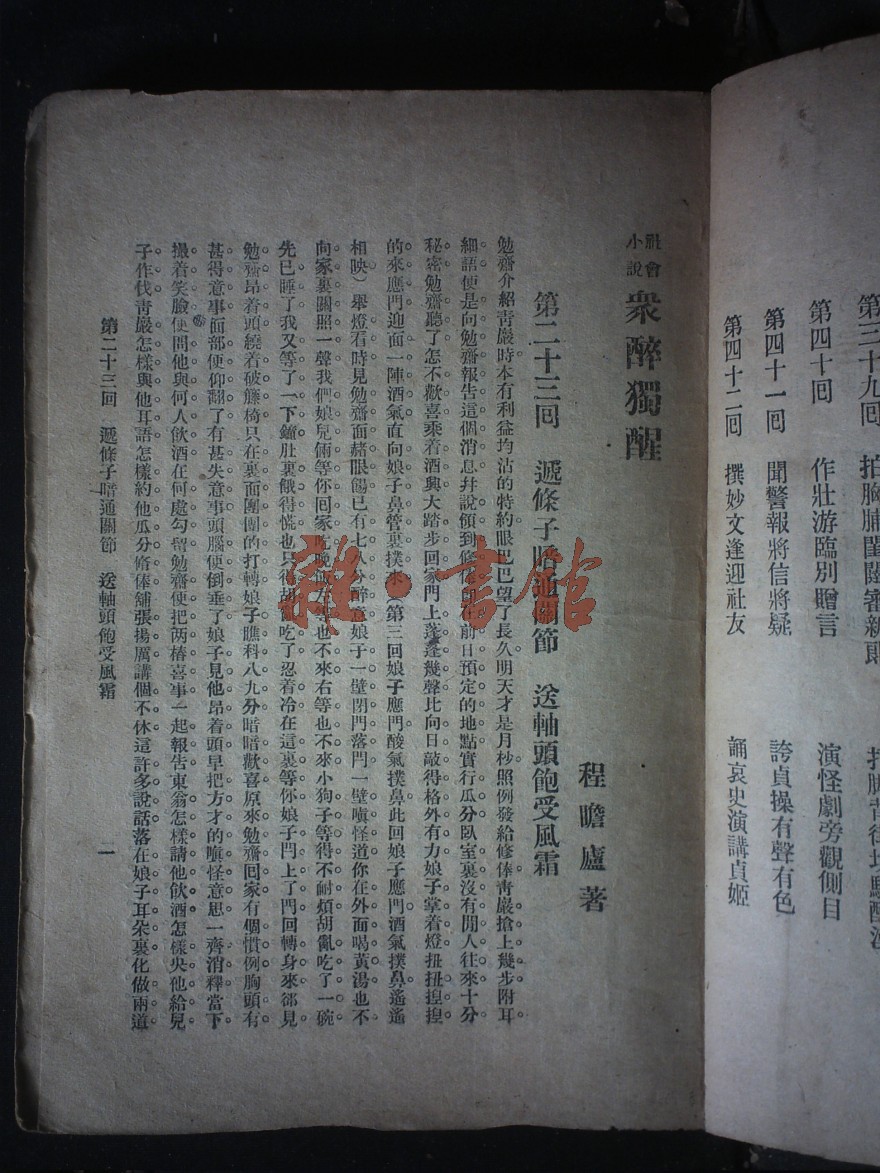 第三十九回 拍胸脯閨闥審新郎
第四十回 作壯游臨別贈言 演怪劇旁觀側目
第四十一回 聞警報將信將疑 誇貞操有聲有色
第四十二回 撰妙文逢迎社友 誦哀史演講貞姬
社會小說 衆醉獨醒
程瞻廬著
第二十三回 遞條子暗通關節 送軸頭飽受風霜
勉齋介紹靑嚴時本有利益均沾的特約眼巴巴望了長久明天才是月杪照例發給修俸靑嚴搶上幾步附耳
細語便是向勉齋報告這個消息幷說領到修俸 在前日預定的地點實行瓜分臥室裏沒有閒人往來十分
秘密勉齋聽了怎不歡喜乘着酒興大踏步回家門上蓬蓬幾聲比向日敲得格外有力娘子掌着燈扭扭揑揑
的來應門迎面一陣酒氣直向娘子鼻管裏撲來(第三回娘子應門酸氣撲鼻此回娘子應門酒氣撲鼻遙遙
相映)舉燈看時見勉齋面赭眼餳已有七八分醉意娘子一壁閉門落閂一壁嗔怪道你在外面喝黃湯也不
向家裏關照一聲我們娘兒倆等你回家吃晚飯左等也不來右等也不來小狗子等得不耐煩胡亂吃了一碗
先已睡了我又等了一下鐘肚裏餓得慌也只得胡亂吃了忍着冷在這裏等你娘子閂上了門回轉身來卻見
勉齋昂着頭繞着破籐椅只在裏面團團的打轉娘子瞧科八九分暗暗歡喜原來勉齋回家有個慣例胸頭有
甚得意事面部便仰翻了有甚失意事頭腦便倒垂了娘子見他昂着頭早把方才的嗔怪意思一齊消釋當下
撮着笑臉便問他與何人飮酒在何處勾留勉齋便把兩樁喜事一起報告東翁怎樣請他飮酒怎樣央他給兒
子作伐靑嚴怎樣與他耳語怎樣約他瓜分修俸舖張揚厲講個不休這許多說話落在娘子耳朵裏化做兩道
第二十三回 遞條子暗通關節 送軸頭飽受風霜 一
雜·書館